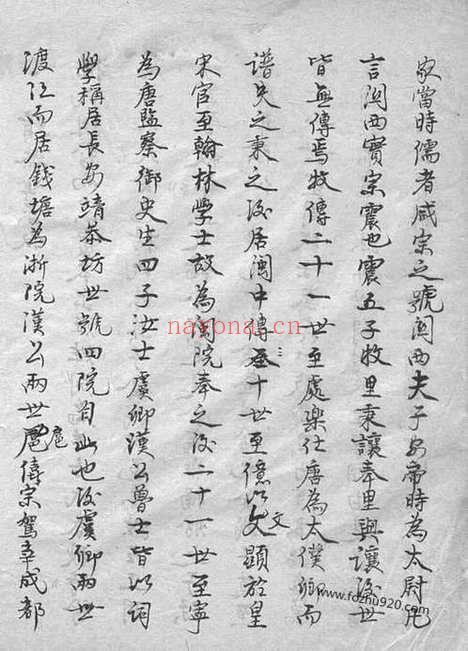 家當時儒者咸宗之號関西夫子安帝時為太尉凡
言関西實宗震也震五子牧里秉讓奉里與讓後世
皆無傳焉牧傳二十一世至處樂仕唐為太僕卿而
譜失之秉之後居閩中傳十世至億以文顯於皇
文
宋官至翰林學士故為閩院奉之後二十一世至寧
為唐監察御史生四子汝士虞卿漢公魯士皆以詞
學稱居長安靖恭坊世號四院自此也後虞卿兩世
渡江而居錢塘為浙院漢公兩世扈僖宗駕幸成都
扈
nayona.cn
www.fozhu920.com